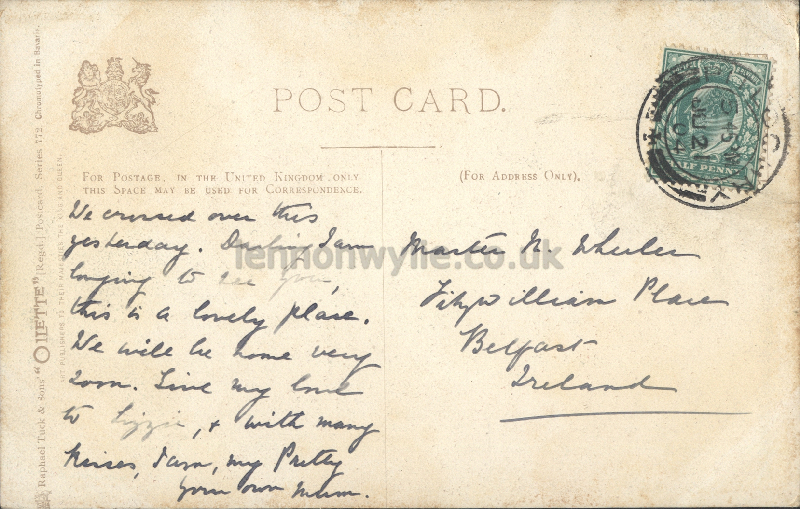 POST CARD.
FOR POSTAGE, IN THE UNITED KINGDOM ONLY,
THIS SPACE MAY BE USED FOR CORRESPONDENCE.
(FOR ADDRESS ONLY).
HALF PENNY
JU 21
04
We crossed over this
yesterday. Darling I am
longing to see you,
this is a lovely place.
We will be home very
soon. Give my love
to Lizzie, & with many
kisses, I am, my Pretty
Your own Mum.
Master N. Wheeler
Fitzwilliam Place
Belfast
Ireland
lennonwylie.co.uk
Raphael Tuck & Sons' "OILETTE" [Regd.] Postcard Series 772. Chromotyped in Bavaria.
ART PUBLISHERS TO THEIR MAJESTIES THE KING AND QUEEN.